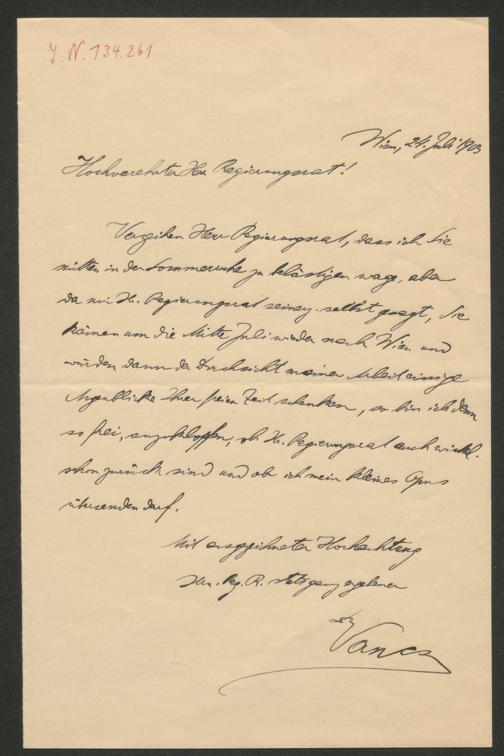 J. N. 134.261
Wien, 24. Juli 1903
Hochverehrter Herr Regierungsrat!
Verzeihen Herr Regierungsrat, dass ich Sie
mitten in der Sommerruhe zu belästigen wage, aber
da mir H. Regierungsrat seinerz. selbst gesagt, Sie
kämen um die Mitte Juli wieder nach Wien und
würden dann der Durchsicht meiner Arbeit einige
Augenblicke Ihrer freien Zeit schenken, so bin ich denn
so frei, anzuklopfen, ob Hr. Regierungsrat auch wirkl.
schon zurück sind und ob ich mein kleines Opus
übersenden darf.
Mit ausgezeichneter Hochachtung
Hrn. Reg. R. stets ganz ergebener
Dr Vancsa